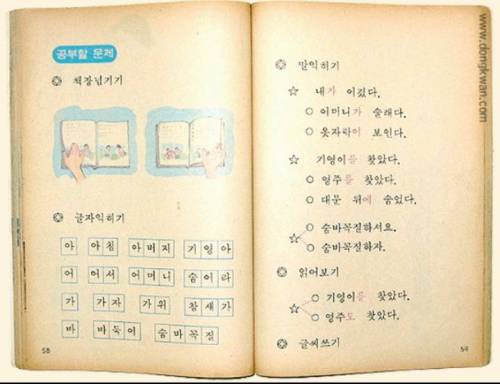 공부할 문제
책장넘기기
글자익히기
아 아침 아버지 기영아
어 어서 어머니 숨어라
가 가자 가위 참새가
바 바둑이 숨바꼭질
58
말익히기
내가 이겼다.
어머니가 술래다.
옷자락이 보인다.
기영이를 찾았다.
영주를 찾았다.
대문 뒤에 숨었다.
숨바꼭질하셔요.
숨바꼭질하자.
읽어보기
기영이를 찾았다.
영주도 찾았다.
글씨쓰기
59
www.dongkwan.com